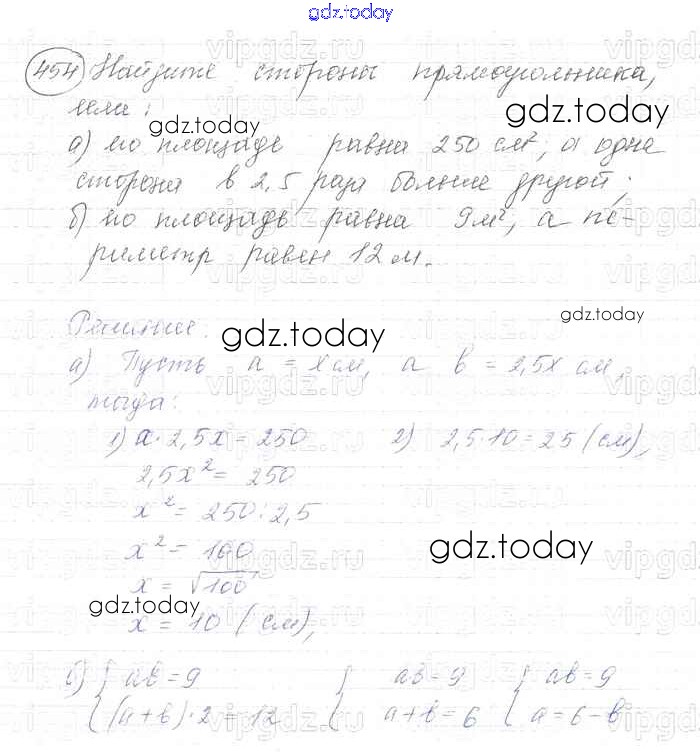 gdz.today
454 Найдите стороны прямоугольника,
если:
gdz.today
gdz.today
а) его площадь равна 250 см², а одна
сторона в 2,5 раза больше другой;
б) его площадь равна 9 м², а пе-
риметр равен 12 м.
gdz.today
Решение.
gdz.today
а) Пусть a = x см, а b = 2,5x см,
тогда:
1) a · 2,5x = 250 2) 2,5 · 10 = 25 (см),
2,5x² = 250
x² = 250 : 2,5
x² = 100
gdz.today
x = √100
gdz.today
x = 10 (см),
б) { ab = 9 { ab = 9 { ab = 9
(a + b) · 2 = 12 a + b = 6 a = 6 - b